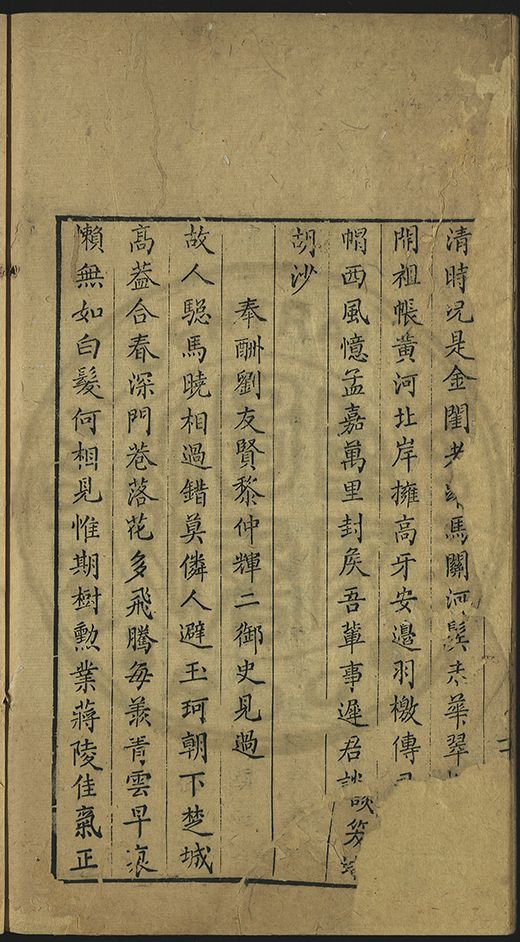 清時况是金閨馬關河鬂未華翠
開祖帳黃河北岸擁高牙安邉羽檄傳
帽西風憶孟嘉萬里封矦吾軰事遲君談笑
胡沙
奉酬劉友賢黎仲輝二御史見過
故人驄馬曉相過錯莫儕人避玉珂朝下楚城
高葢合春深門巷落花多飛騰每羨青雲早衰
懶無如白髮何相見惟期樹勲業蔣陵佳氣正